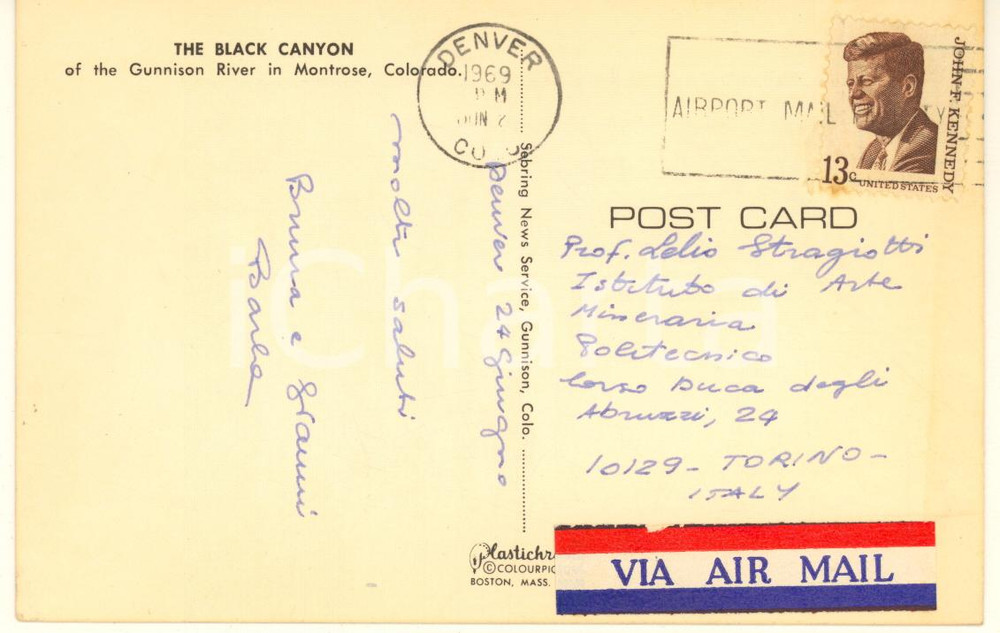 THE BLACK CANYON
of the Gunnison River in Montrose, Colorado.
DENVER
1969
PM
JUN 2
CO
AIRPORT MAIL
JOHN F. KENNEDY
13c
UNITED STATES
POST CARD
Denver 24 Giugno
molti saluti
Bruna e Gianni
Prof. Lelio Stragiotti
Istituto di Arte
Mineraria
Politecnico
Corso Duca degli
Abruzzi, 24
10129 - TORINO -
ITALY
Sebring News Service, Gunnison, Colo.
Plastichr
©COLOURPIC
BOSTON, MASS.
VIA AIR MAIL
iCharta